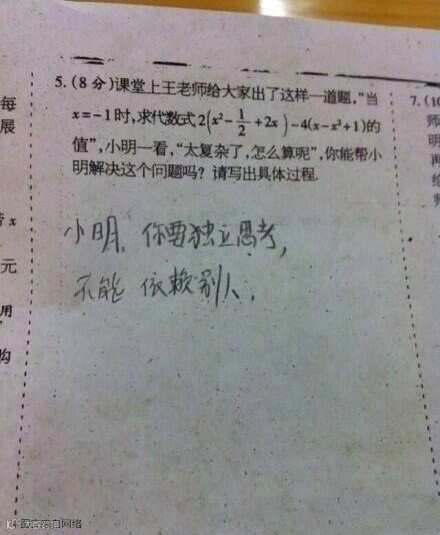 5. (8 分)课堂上王老师给大家出了这样一道题,“当
x=-1时,求代数式2(x²-1/2+2x)-4(x-x²+1)的
值”,小明一看,“太复杂了,怎么算呢”,你能帮小
明解决这个问题吗? 请写出具体过程.
小明, 你要独立思考,
不能 依赖别人.
每
展
x
元
用
构
7. (10
师
明
再
给